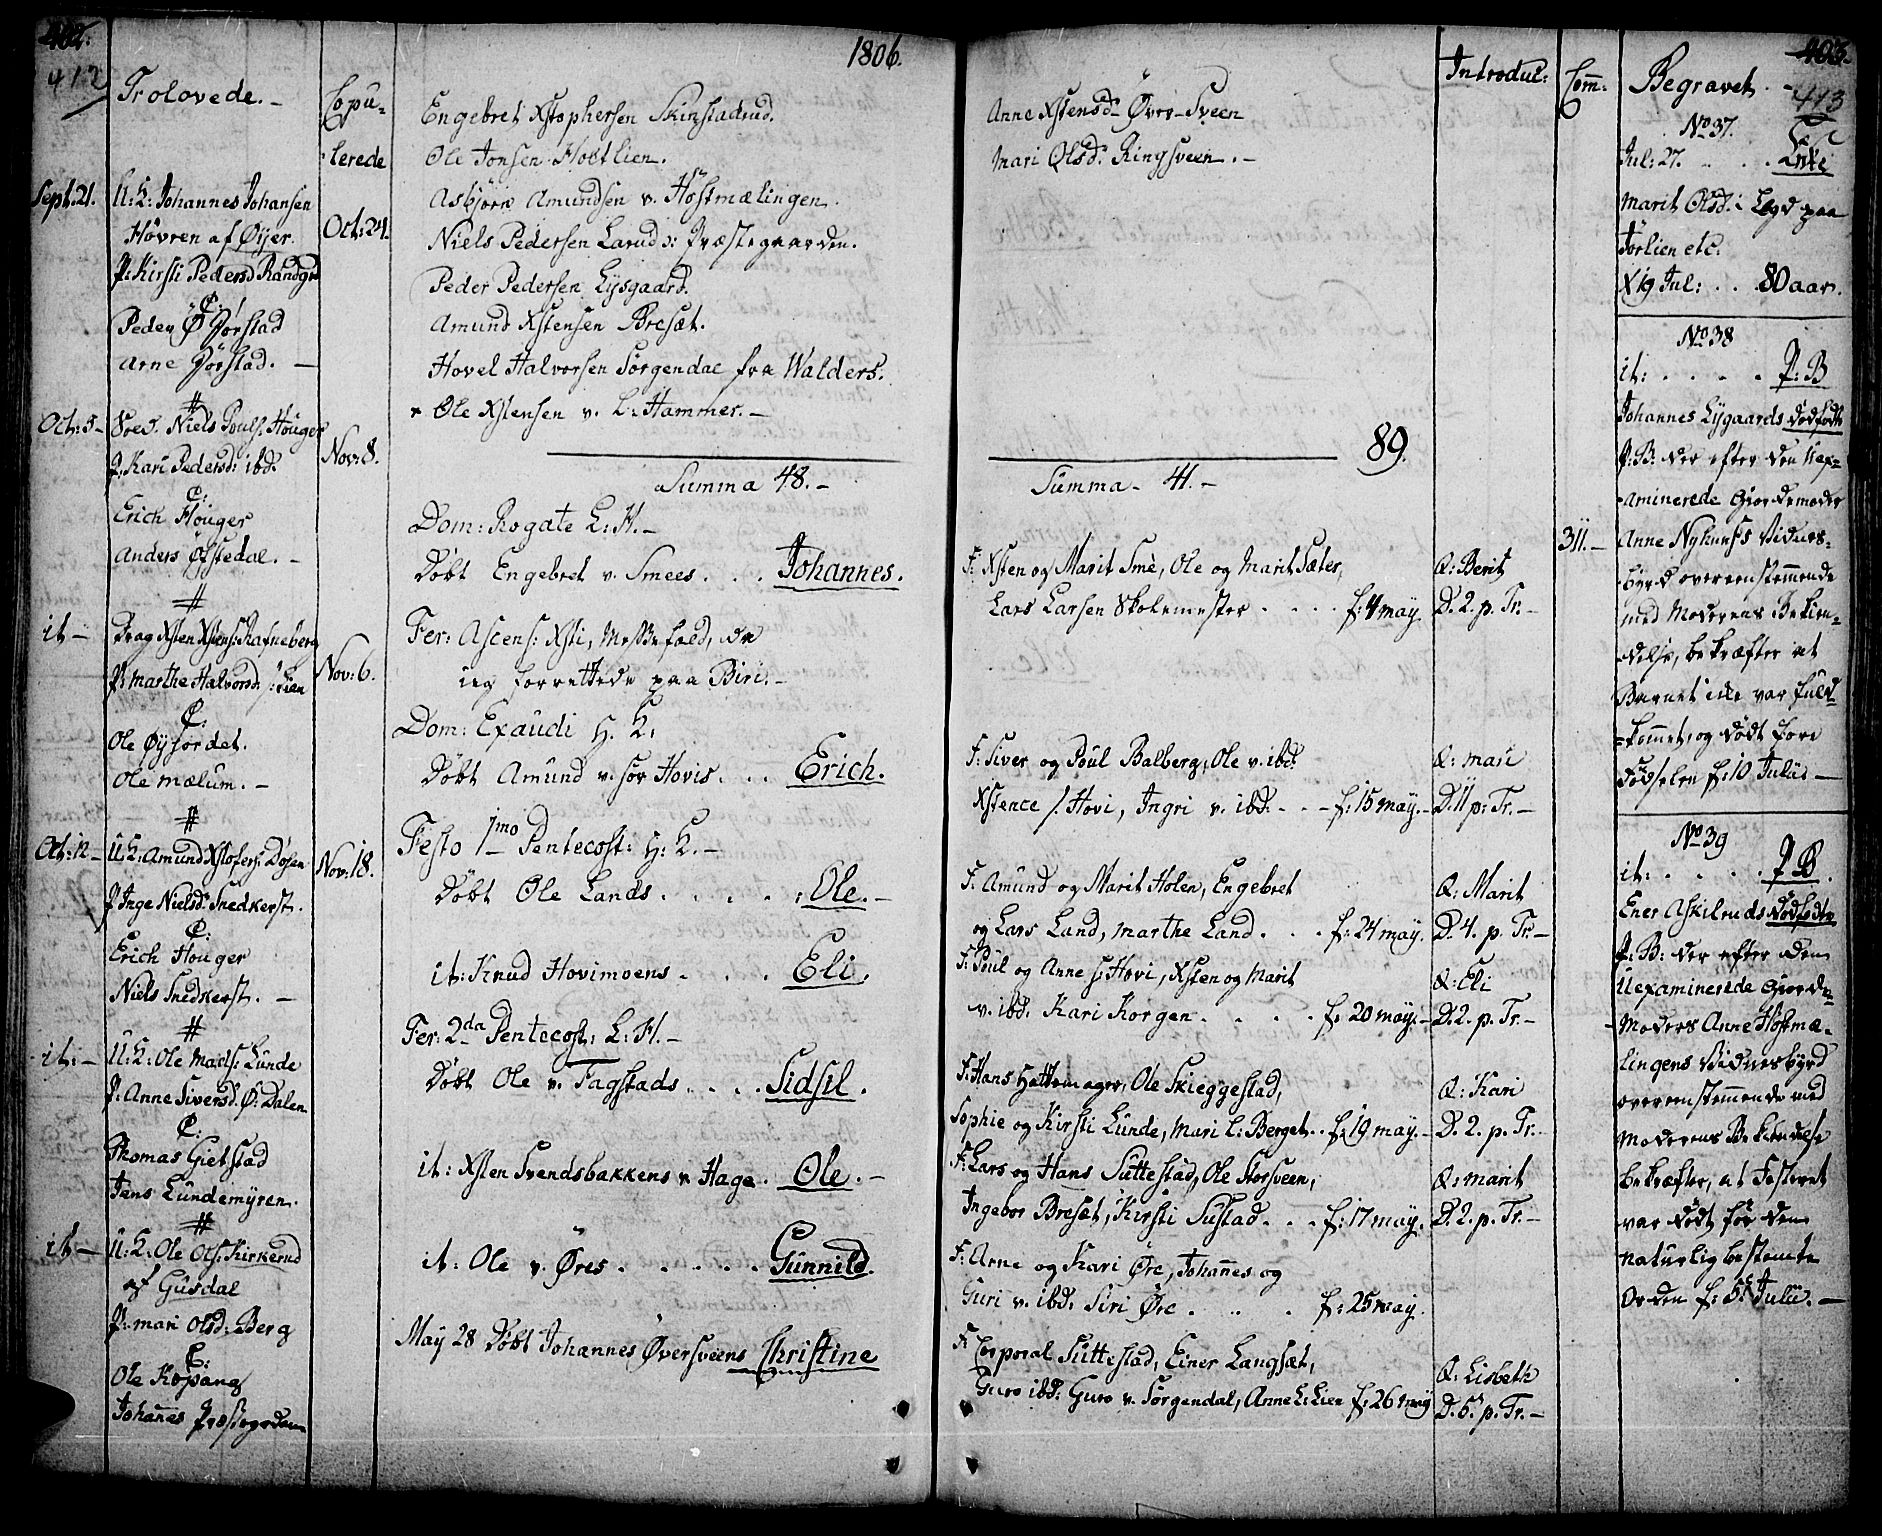 402.
412
1806.
Trolovede. -
Copu-
lerede
Sept: 21.
U: K: Johannes Johansen
Høvren af Øijer
Oct: 24.
P: Kirsti Pedersd Randgr
C:
Peder Ø Jørstad
Arne Jørstad. -
#
Oct: 5 -
Soed. Niels Pouls. Houger
P: Kari Pedersd: ibd.
Nov: 8.
C:
Erich Houger
Anders Ofstedal. -
#
it -
Drag Xsten Xstens: Rafneberg
P: Marthe Halvorsd: Lien
Nov: 6.
C:
Ole Øyjordet.
Ole Mælum. -
#
Oct: 12 -
U: K: Amund Xstofers: Dosen
P: Inge Nielsd. Snedkerst.
Nov: 18.
C:
Erich Houger
Niels Snedkerst. -
#
it: -
U: K: Ole Mads: Lunde
P: Anne Siversd. Ø: Dalen
C:
Thomas Gietstad
Jens Lundemyren.
#
it -
U: K: Ole Ols: Kirkerud
af Gusdal
P: Mari Olsd: Berg
C:
Ole Kopang
Johannes Præstegarden
Engebret Xstophersen Skinstadrud.
Ole Jonsen Holtlien.
Asbjørn Amundsen v. Høstmælingen.
Niels Pedersen Larud ɔ: Præstegaarden.
Peder Pedersen Lysgaard.
Amund Xstensen Bresæt.
Hovel Halvorsen Sørgendal fra Walders.
Ole Xstensen v. L: Hammer. -
Summa 48. -
Dom: Rogate L: H. -
Døbt Engebret v. Smees . . . Johannes.
Fer: Ascens: Xsti, Messefald, da
ieg forrettede paa Biri. -
Dom: Exaudi H. K.
Døbt Amund v. Sør Hovis . . . Erich.
Festo 1mo Pentecost: H: K. -
Døbt Ole Lands . . . . . Ole. -
it: Knud Hovimoens . . . Eli.
Fer: 2da Pentecost: L: H. -
Døbt Ole v. Fagstads . . . . Sidsil.
it: Xsten Svendsbakkens v Hage . Ole. -
it: Ole v. Øres . . . . . . Gunnild.
May 28 Døbt Johannes Øversveens Christine
Anne Xstensd - Øvre - Sveen
Mari Olsd. Ringsveen. -
89.
Summa - 41. -
F: Xsten og Marit Smè, Ole og Marit Sæter,
Lars Larsen Skolemester . . . . f: 4 may.
F: Siver og Poul Balberg, Ole v. ibd.
Xstence S. Hovi, Ingri v. ibd. . . - f: 15 may. -
F: Amund og Marit Holen, Engebret
og Lars Land, Marthe Land . . . f: 24 may.
F: Poul og Anne S: Hovi, Xsten og Marit
v. ibd. Kari Korgen . . . . f: 20 may. -
F: Hans Hattemager, Ole Skieggestad,
Sophie og Kirsti Lunde, Mari L: Berget . . f: 19 may. -
F: Lars og Hans Suttestad, Ole Storsveen,
Ingebor Bresæt, Kirsti Sustad . . . f: 17 may.
F: Arne og Kari Øre, Johannes og
Guri v. ibd. Siri Øre . . . . f: 25 may.
F: Corporal Suttestad, Einer Langsæt,
Guro ibd: Guro v. Sørgendal, Anne L: Lien f: 26 may
Introduc:
Q: Berit
D. 2. p. Tr. -
Q: Mari
D. 11 p: Tr. -
Q: Marit
D. 4. p. Tr -
Q: Eli
D. 2. p. Tr. -
Q: Kari
D. 2. p. Tr. -
Q: Marit
D. 2. p. Tr. -
Q: Lisbeth
D. 5. p. Tr. -
Comm:
311. -
403.
413
Begravet. -
No 37.
Jul: 27. . . . Enke
Marit Olsd. i Legd paa
Jørlien etc.
X 19 Jul: . . 80 aar.
No 38
it: . . . . P: B
Johannes Lysgaards dødfødte
P: B: der efter den Uex-
aminerede Giordemoder
Anne Nyhuus's Vidnes-
byrd overeenstemmende
med Moderens Bekien-
delse, bekræfter at
Barnet ikke var fuld-
kommet, og dødt føre
Fødselen f: 10 Julii -
No 39
it: . . . . P B.
Ener Askilruds dødfødte
P: B: der efter den
Uexaminerede Giorde-
Moders Anne Høstmæ-
lingens Vidnesbyrd
overeenstemmende med
Moderens Bekiendelse
bekræfter, at Fosteret
var dødt før den
naturlig bestemte
Orden f: 5. Julii. -